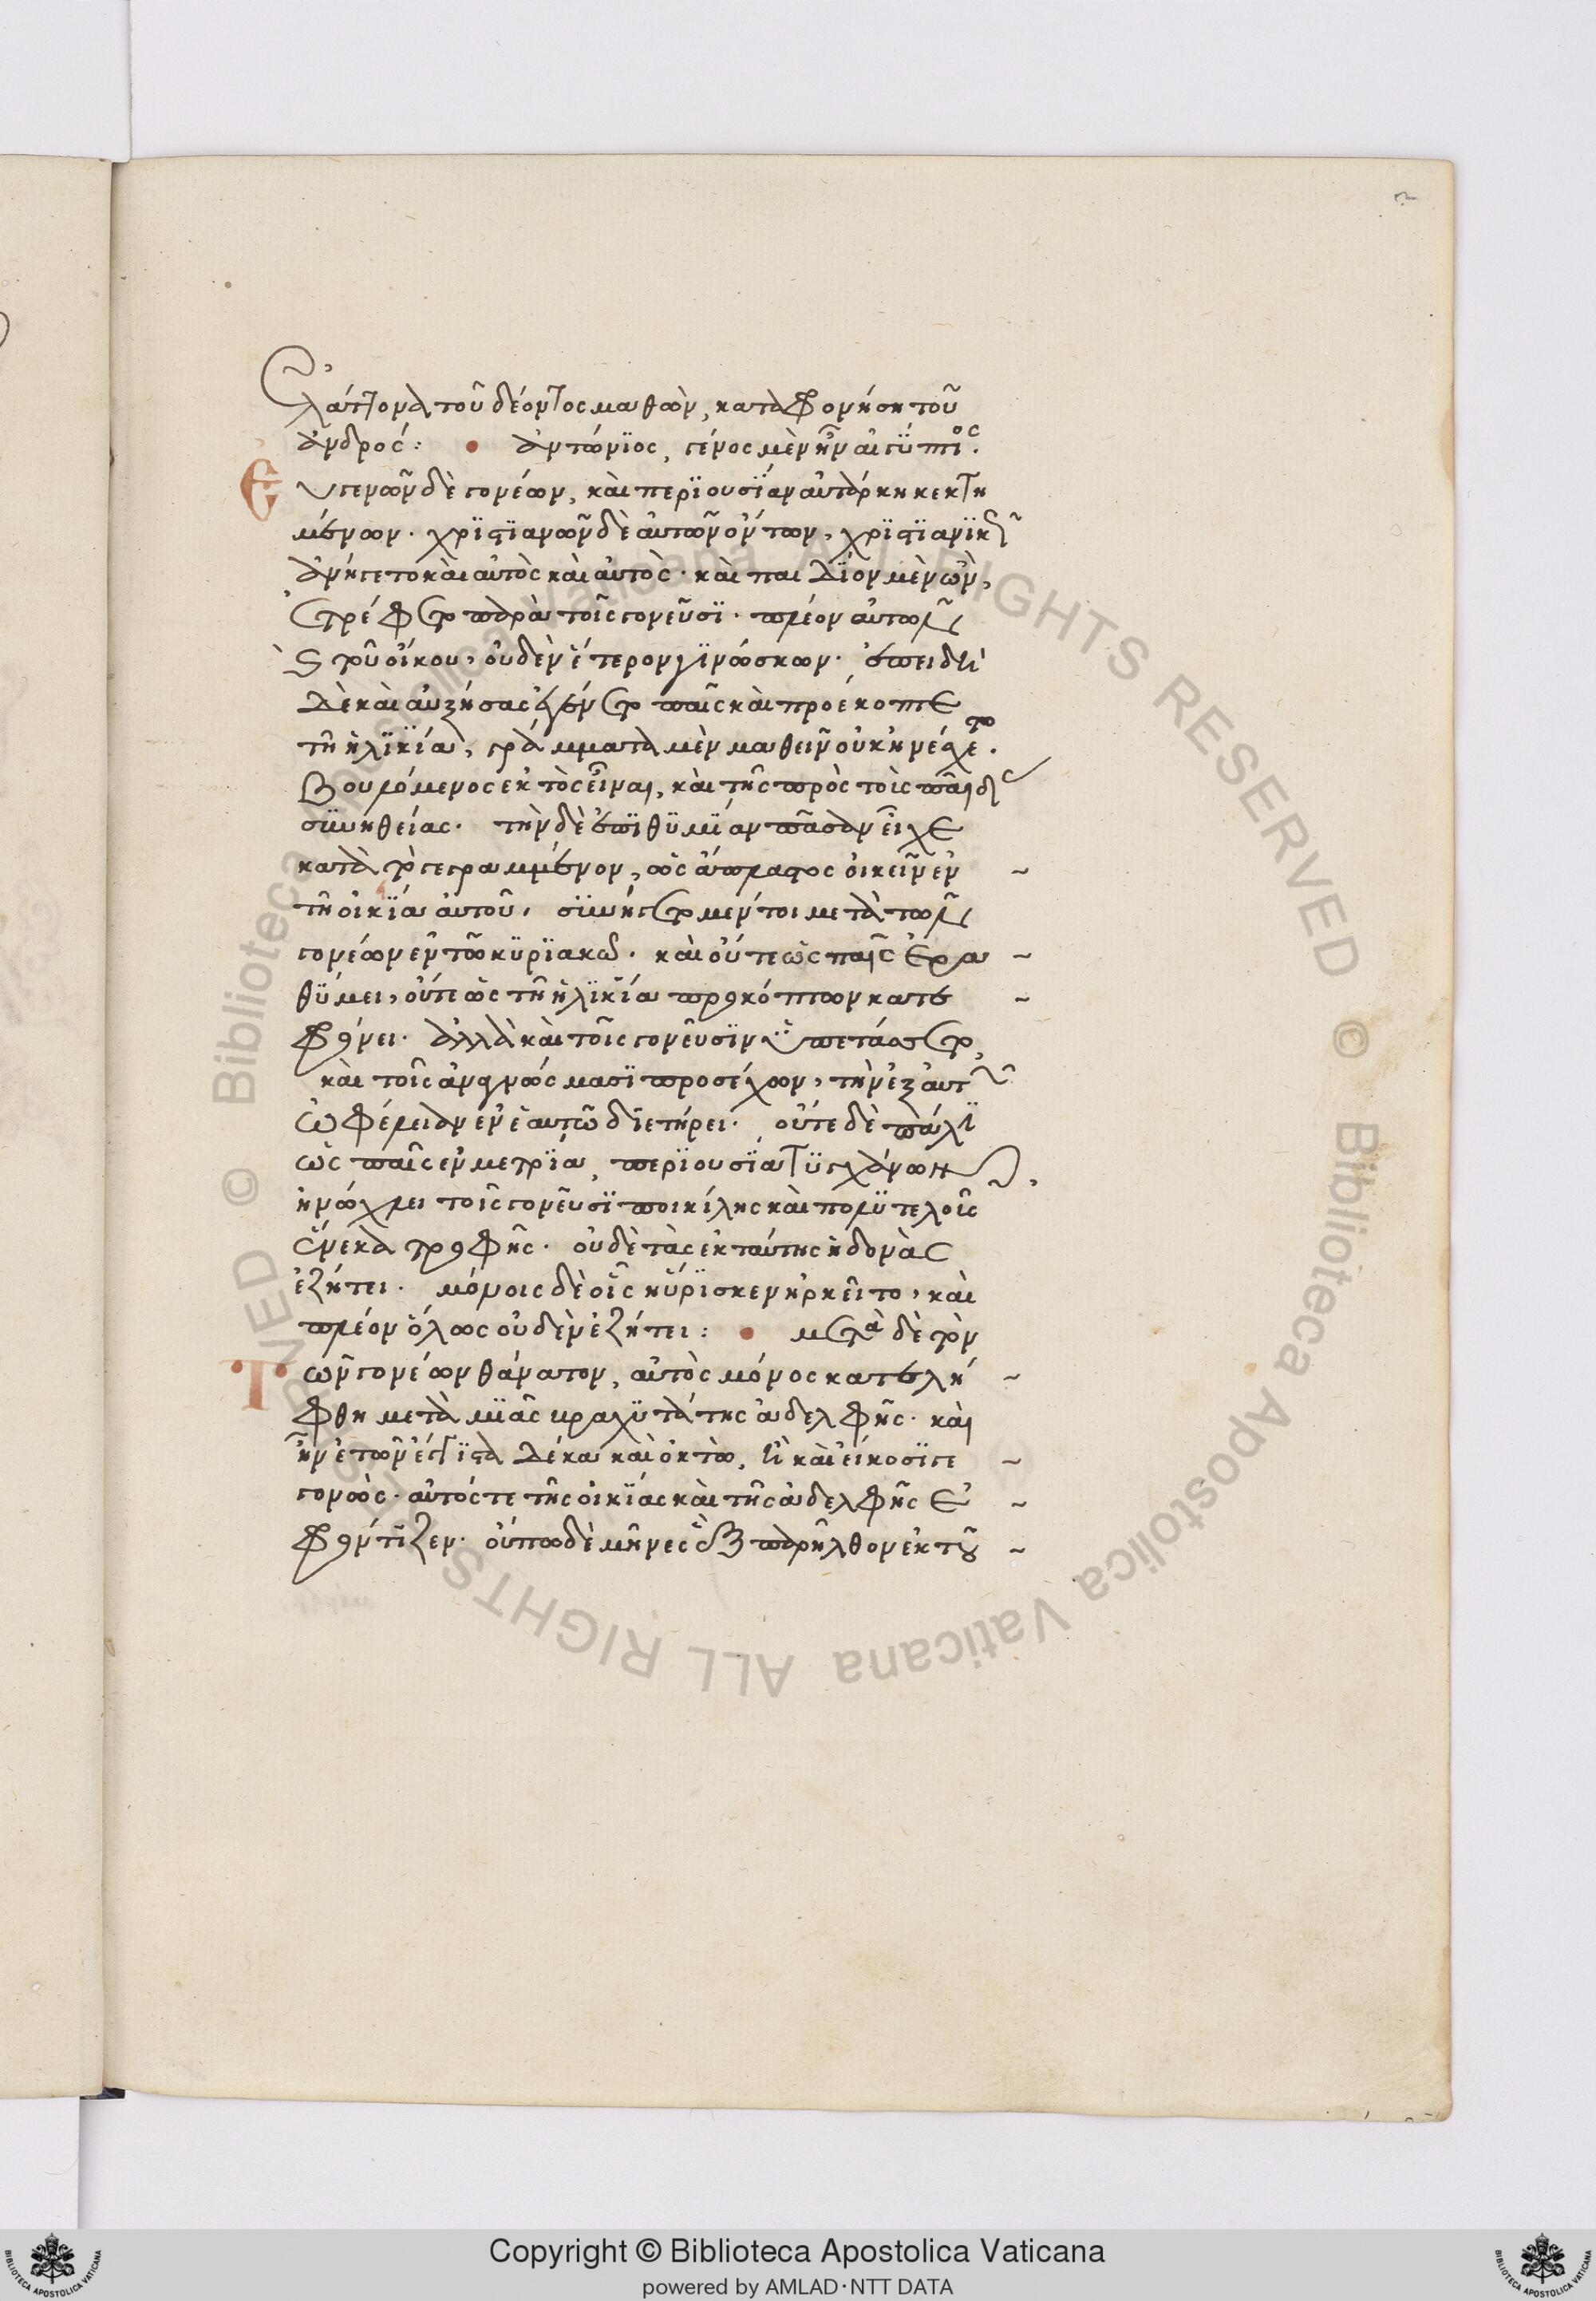 ἐλάττονα τοῦ δέοντος μαθὼν, καταφρονήση τοῦ
ἀνδρός: • ἀντώνϊος, γένος μὲν ἦν αἰγύπτιος.
Εὐγενῶν δὲ γονέων, καὶ περϊουσΐαν αὐτάρκη κεκτη
μένων. χρϊστϊανῶν δὲ αὐτῶν ὄντων, χρϊστϊανϊκῶς
ἀνήγετο καὶ αὐτὸς καὶ αὐτὸς. καὶ παιδΐον μὲν ὢν,
ἐτρέφετο παρὰ τοῖς γονεῦσϊ. πλέον αὐτῶν
καὶ τοῦ οἴκου, οὐδὲν ἕτερον γϊνώσκων. ἐπειδὴ
δὲ καὶ αὐξήσας ἐγένετο παῖς καὶ προέκοπτε
τῆ ἡλϊκΐα, γράμματα μὲν μαθεῖν οὐκ ἠνέσχετο.
βουλόμενος ἐκτὸς εἶναι, καὶ τῆς πρὸς τοὺς παῖδας
συνηθείας. τὴν δὲ ἐπϊθϋμΐαν πᾶσαν εἶχε
κατὰ τὸ γεγραμμένον, ὡς ἄπλαστος οἰκεῖν ἐν
τῆ οἰκΐα αὐτοῦ, συνήγετο μέντοι μετὰ τῶν
γονέων ἐν τῶ κϋρϊακῶ. καὶ οὔτε ὡς παῖς ἐρρα
θΰμει, οὔτε ὡς τῆ ἡλϊκΐα προκόπτων κατε
φρόνει. ἀλλὰ καὶ τοῖς γονεῦσϊν ὑπετάσσετο,
καὶ τοῖς ἀναγνώσμασϊ προσέχων, τὴν ἐξ αὐτῶν
ὠφέλειαν ἐν ἑαυτῶ διετήρει. οὔτε δὲ πάλϊν
ὡς παῖς ἐν μετρΐα περϊουσΐα τϋγχάνων,
ἠνώχλει τοῖς γονεῦσϊ ποικίλης καὶ πολϋτελοῦς
ἕνεκα τροφῆς. οὐδὲ τὰς ἐκ ταύτης ἡδονὰς
ἐζήτει. μόνοις δὲ οἷς ηὕρϊσκεν ἠρκεῖτο, καὶ
πλέον ὅλως οὐδὲν ἐζήτει: • μετὰ δὲ τὸν
Τῶν γονέων θάνατον, αὐτὸς μόνος κατελή
φθη μετὰ μϊᾶς βραχϋτάτης ἀδελφῆς. καὶ
ἦν ἐτῶν ἐγγϊστα δέκα καὶ ὀκτὼ, ἢ καὶ εἴκοσϊ γε
γονώς. αὐτός τε τῆς οἰκΐας καὶ τῆς ἀδελφῆς ἐ
φρόντϊζεν. οὔπω δὲ μῆνες ἓξ παρῆλθον ἐκ τοῦ
Copyright © Biblioteca Apostolica Vaticana
powered by AMLAD·NTT DATA